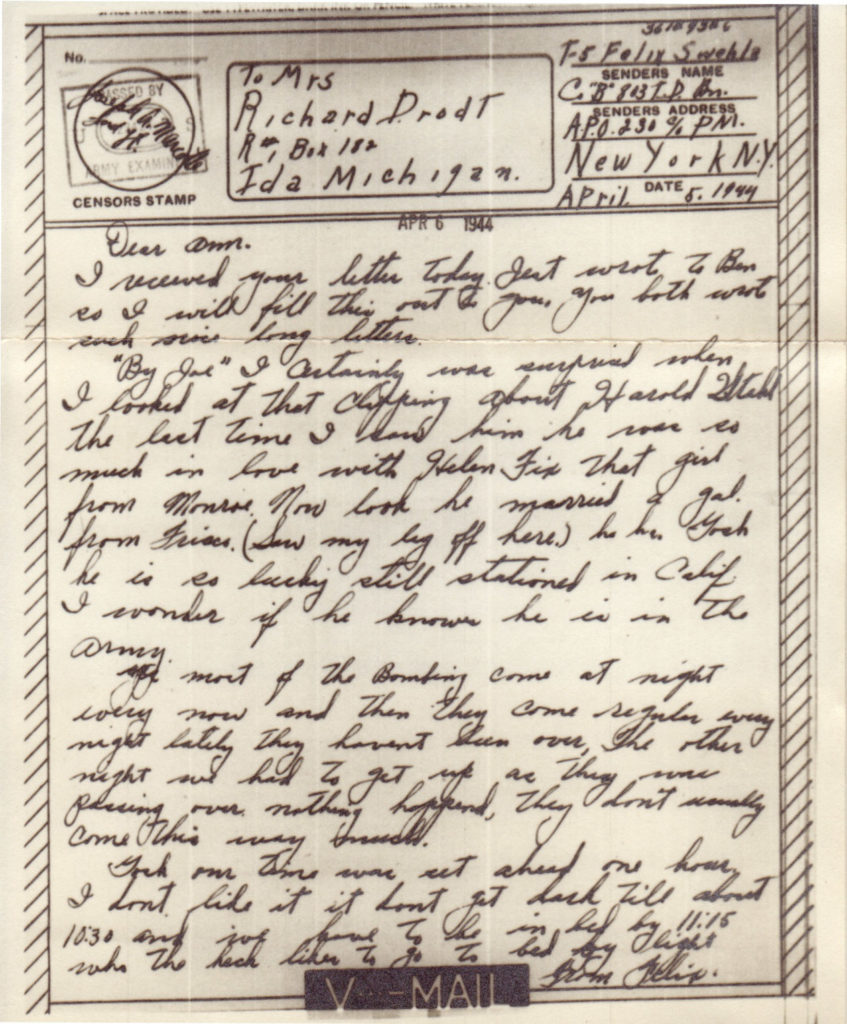 No.
PASSED BY
ARMY EXAMIN
CENSORS STAMP
To Mrs
Richard Drodt
R#1 Box 182
Ida Michigan.
T-5 Felix Swehla
SENDERS NAME
Co. "B" 813 T.D. Bn.
SENDERS ADDRESS
A.P.O. 230 % P.M.
New York N.Y.
April DATE 5. 1944
APR 6 1944
Dear Ann.
I received your letter today. Just wrote to Ben
so I will fill this out to you. You both wrote
such nice long letters.
"By Joe" I certainly was surprised when
I looked at that clipping about Harold
the last time I saw him he was so
much in love with Helen Fix that girl
from Monroe. Now look he married a gal.
from Frisco. (Saw my leg off here.) ha ha. Gosh
he is so lucky still stationed in Calif
I wonder if he knows he is in the
army.
most of the Bombing come at night
every now and then they come regular every
night lately they havent been over, The other
night we had to get up as they was
passing over. nothing happend, They don't usually
come this way much.
Gosh our time was set ahead one hour,
I dont like it it dont get dark till about
10:30 and we have to be in bed by 11:15
who the heck likes to go to bed by light
From Felix.
V-MAIL